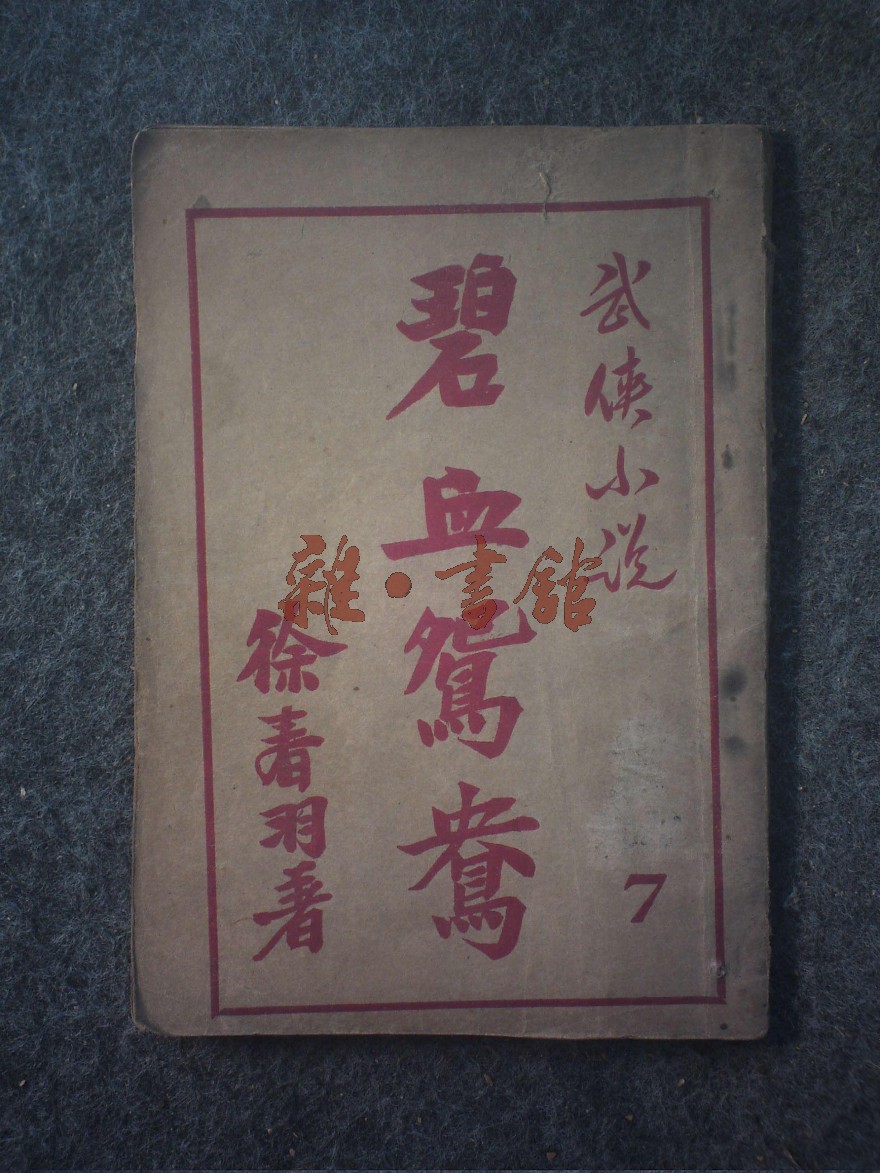 武俠小說
碧血鴛鴦
徐春羽著
7
雜·書館